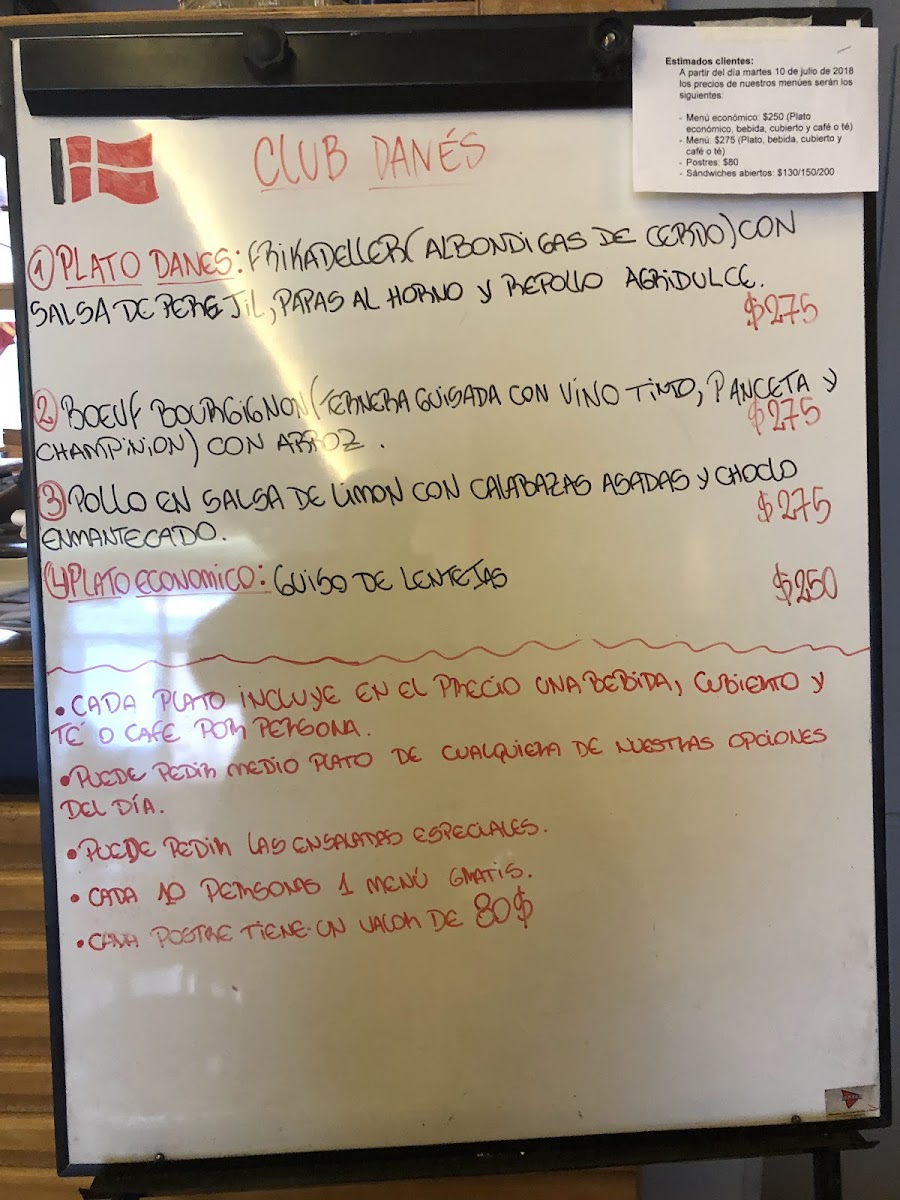 Estimados clientes:
A partir del día martes 10 de julio de 2018
los precios de nuestros menúes serán los
siguientes:
- Menú económico: $250 (Plato
económico, bebida, cubierto y café o té)
- Menú: $275 (Plato, bebida, cubierto y
café o té)
- Postres: $80
- Sándwiches abiertos: $130/150/200
CLUB DANÉS
① PLATO DANES: FRIKADELLER (ALBONDIGAS DE CERDO) CON
SALSA DE PEREJIL, PAPAS AL HORNO Y REPOLLO AGRIDULCE.
$275
② BOEUF BOURGIGNON (TERNERA GUISADA CON VINO TINTO, PANCETA Y
$275
CHAMPINION) CON ARROZ.
③ POLLO EN SALSA DE LIMON CON CALABAZAS ASADAS Y CHOCLO
$275
ENMANTECADO.
④ PLATO ECONOMICO: GUISO DE LENTEJAS
$250
• CADA PLATO INCLUYE EN EL PRECIO UNA BEBIDA, CUBIERTO Y
TÉ O CAFE POR PERSONA.
• PUEDE PEDIR MEDIO PLATO DE CUALQUIERA DE NUESTRAS OPCIONES
DEL DÍA.
• PUEDE PEDIR LAS ENSALADAS ESPECIALES.
• CADA 10 PERSONAS 1 MENÚ GRATIS.
• CADA POSTRE TIENE UN VALOR DE 80$